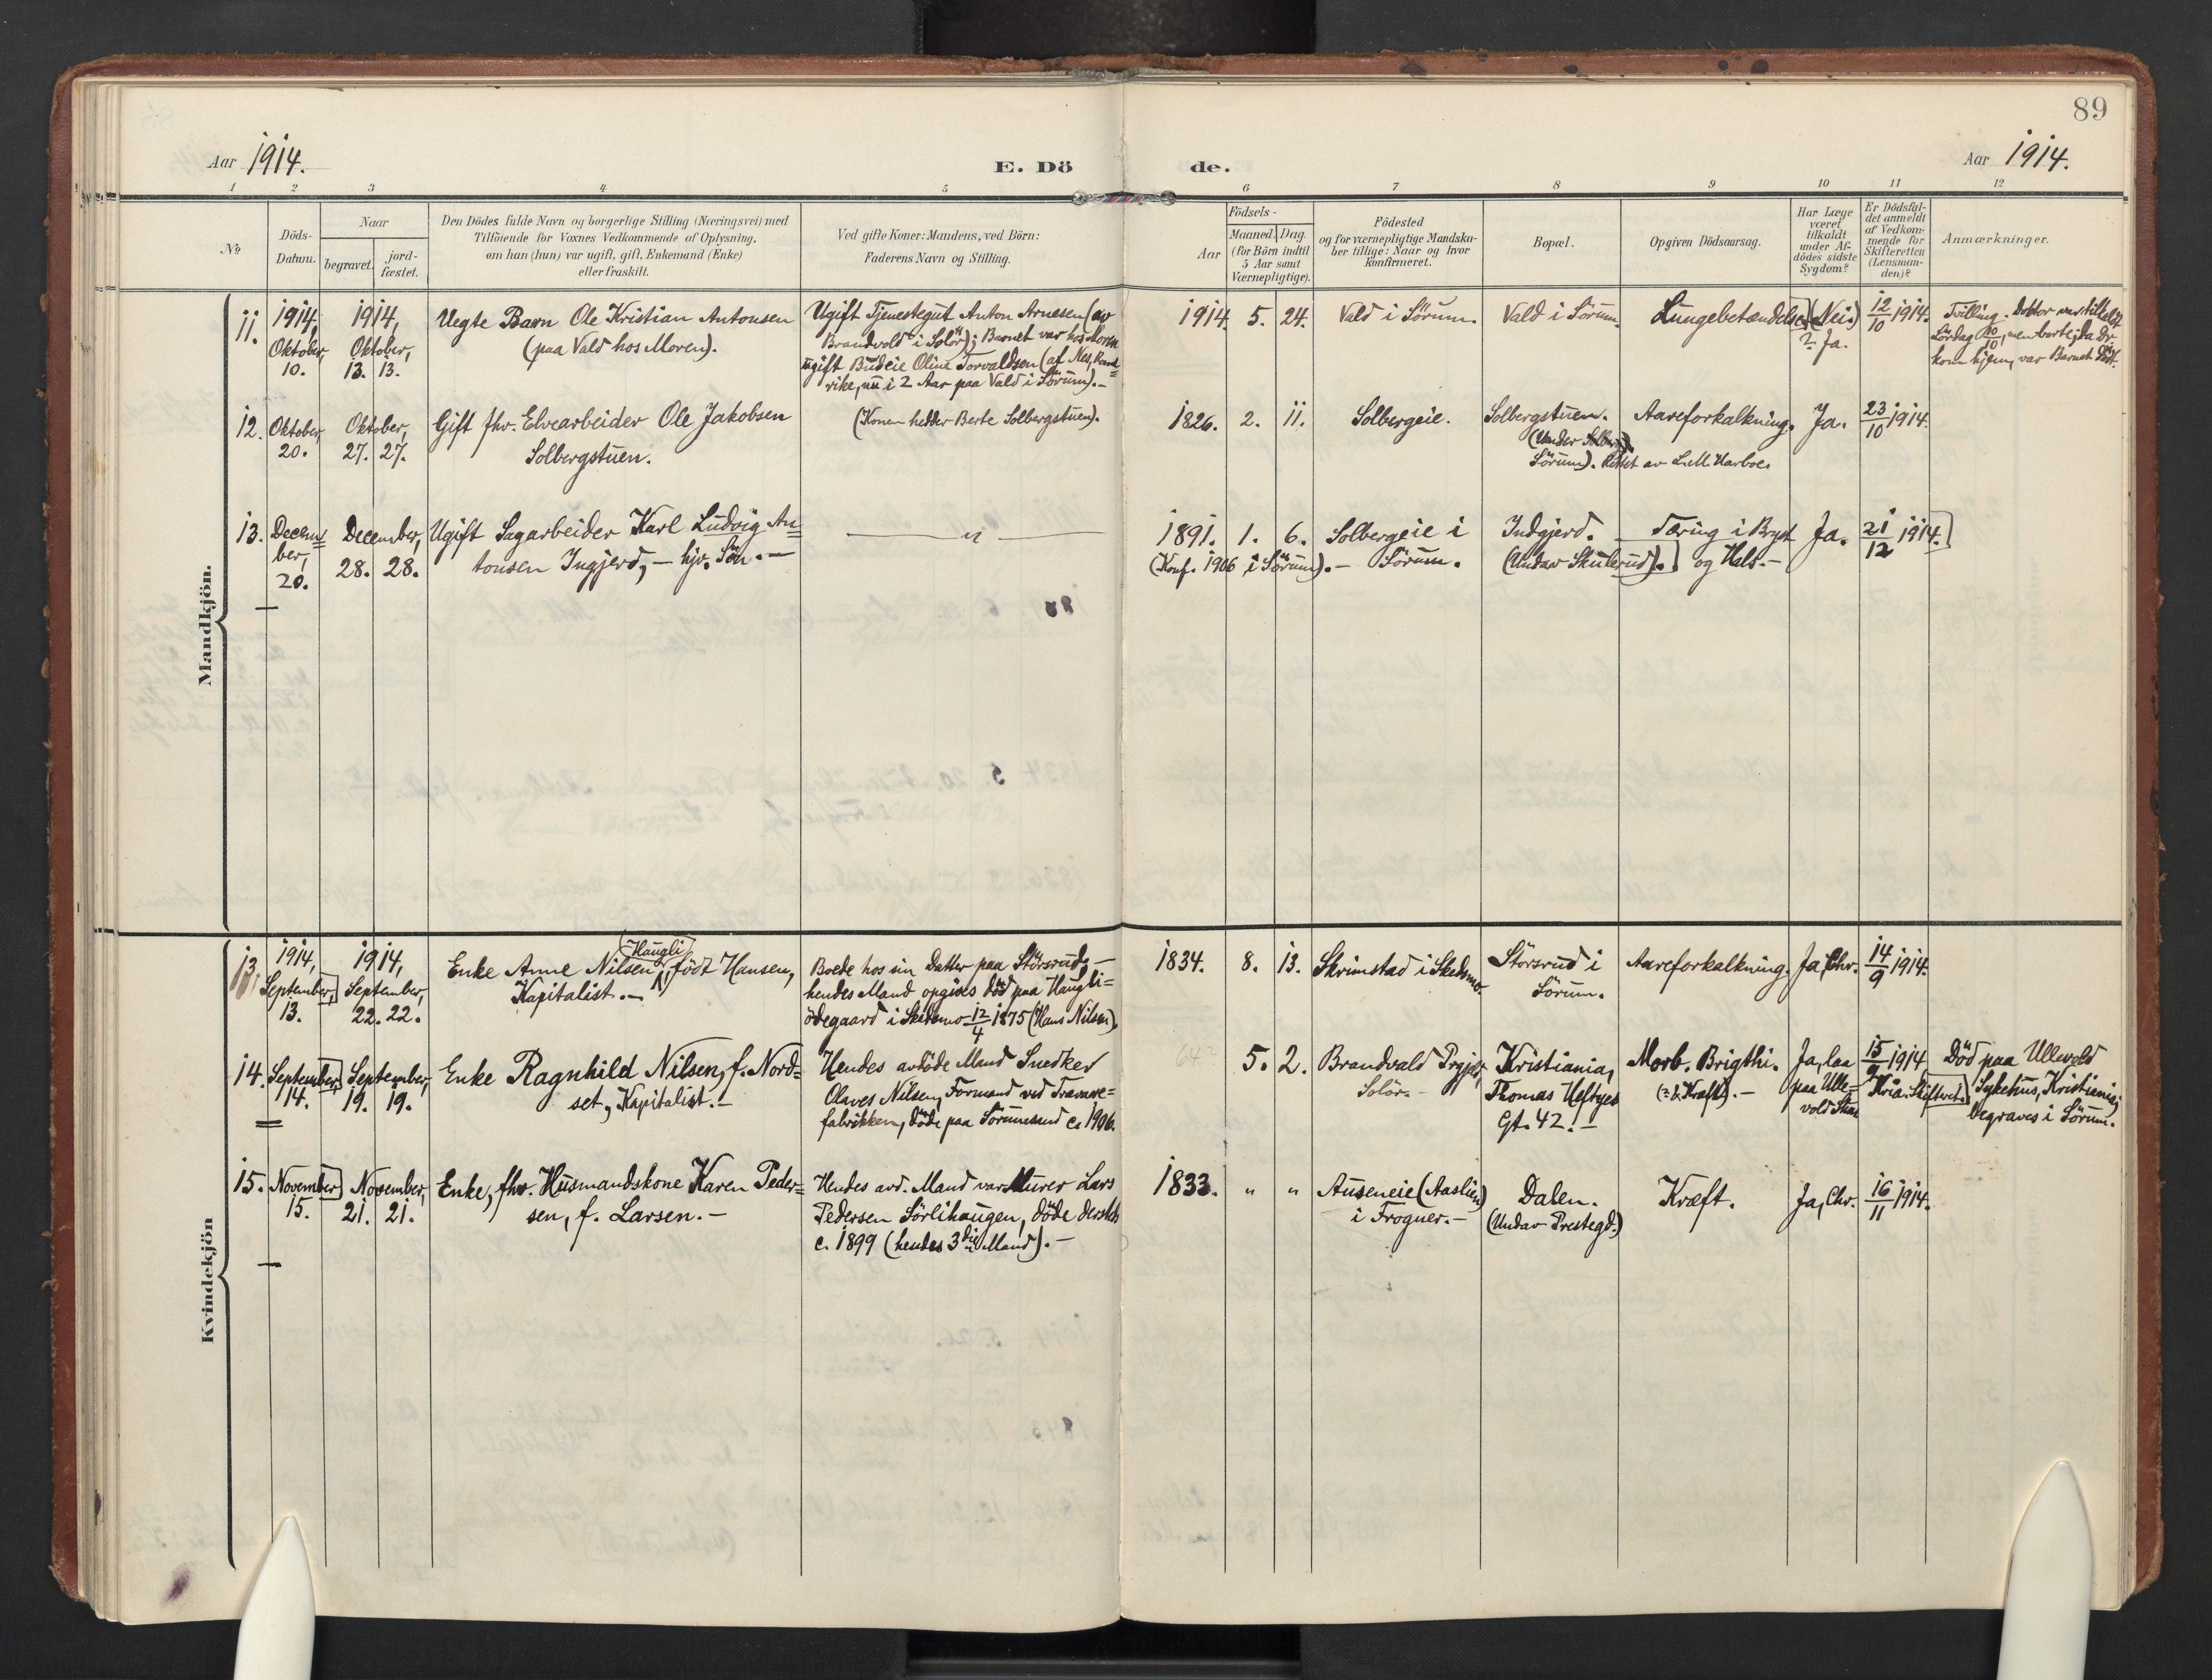 89
Aar 1914.
E. Dö
de.
Aar 1914.
1 2 3 4 5 6 7 8 9 10 11 12
No
Döds-
Datum.
Naar
begravet.
jord-
fæstet.
Den Dödes fulde Navn og borgerlige Stilling (Næringsvei) med
Tilföiende for Voxnes Vedkommende af Oplysning,
om han (hun) var ugift, gift, Enkemand (Enke)
eller fraskilt.
Ved gifte Koner: Mandens, ved Börn:
Faderens Navn og Stilling.
Födsels-
Aar
Maaned. Dag.
(for Börn indtil
5 Aar samt
Værnepligtige).
Födested
og for værnepligtige Mandska-
ber tillige: Naar og hvor
konfirmeret.
Bopæl.
Opgiven Dödsaarsag.
Har Læge
været
tilkaldt
under Af-
dödes sidste
Sygdom?
Er Dödsfal-
det anmeldt
af Vedkom-
mende for
Skifteretten
(Lensman-
den)?
Anmærkninger.
Mandkjön.
11.
1914,
Oktober,
10.
1914,
Oktober,
13. 13.
Uegte Barn Ole Kristian Antonsen
(paa Vald hos Moren).
Ugift Tjenestegut Anton Arnesen (av
Brandvold i Solör); Barnet var hos Moren
ugift Budeie Oline Torvaldsen (af Nes, Rome=
rike, nu i 2 Aar paa Vald i Sörum).-
1914. 5. 24.
Vald i Sörum.
Vald i Sörum.
Lungebetændelse.
(Nei.)
? Ja.
12/10 1914.
Tvilling. Doktor var tilkaldt
Lördag 10/10, men borte; da Dr
kom hjem, var Barnet död.
12.
Oktober,
20.
Oktober,
27. 27.
Gift fhv. Elvearbeider Ole Jakobsen
Solbergstuen.
(Konen hedder Berte Solbergstuen).
1826. 2. 11.
Solbergeie.
Solbergstuen.
(Under Solberg,
Sörum). Rettet av L.M. Harboe.
Aareforkalkning.
Ja.
23/10 1914.
13.
Decem=
ber,
20.
December,
28. 28.
Ugift Sagarbeider Karl Ludvig An=
tonsen Ingjerd, - hjv. Sön. -
— " —
1891. 1. 6.
(Konf. 1906 i Sörum).-
Solbergeie i
Sörum.
Indgjerd.
(Undar Skulerud).
Tæring i Bryst
og Hals.-
Ja.
21/12 1914.
Kvindekjön
13
1914,
September,
13.
1914,
September,
22. 22.
(Haugli)
Enke Anne Nilsen, födt Hansen,
Kapitalist.-
Boede hos sin Datter paa Störsrud, -
hendes Mand opgives död paa Haugli=
ödegaard i Skedsmo 12/4 1875 (Hans Nilsen).
1834. 8. 13.
Skrimstad i Skedsmo.
Störsrud i
Sörum.
Aareforkalkning.
Ja, Chr.
14/9 1914.
14.
September,
14.
September,
19. 19.
Enke Ragnhild Nilsen, f. Nord=
set, Kapitalist.-
Hendes avdöde Mand Snedker
Olaves Nilsen, Formand ved Trævare=
fabrikken, döde paa Sörumsand c. 1906.
5. 2.
Brandvald Prgjeld,
Solör.-
Kristiania,
Thomas Heftyes
Gt. 42.-
Morb. Brigthi.
(: & Kræft).-
Ja, laa
paa Ulle=
vold
15/9 1914
Kria. Skifteret.
Död paa Ullevold
Sykehus, Kristiania;
begraves i Sörum.
15.
November,
15.
November,
21. 21.
Enke, fhv. Husmandskone Karen Peder=
sen, f. Larsen.-
Hendes avd. Mand var Murer Lars
Pedersen Sörlihaugen, döde dersteds
c. 1899 (hendes 3die Mand).-
1833. " "
Auseneie (Aaslien)
i Frogner.-
Dalen.
(Undar Prestegd.)
Kræft.
Ja, Chr.
16/11 1914.